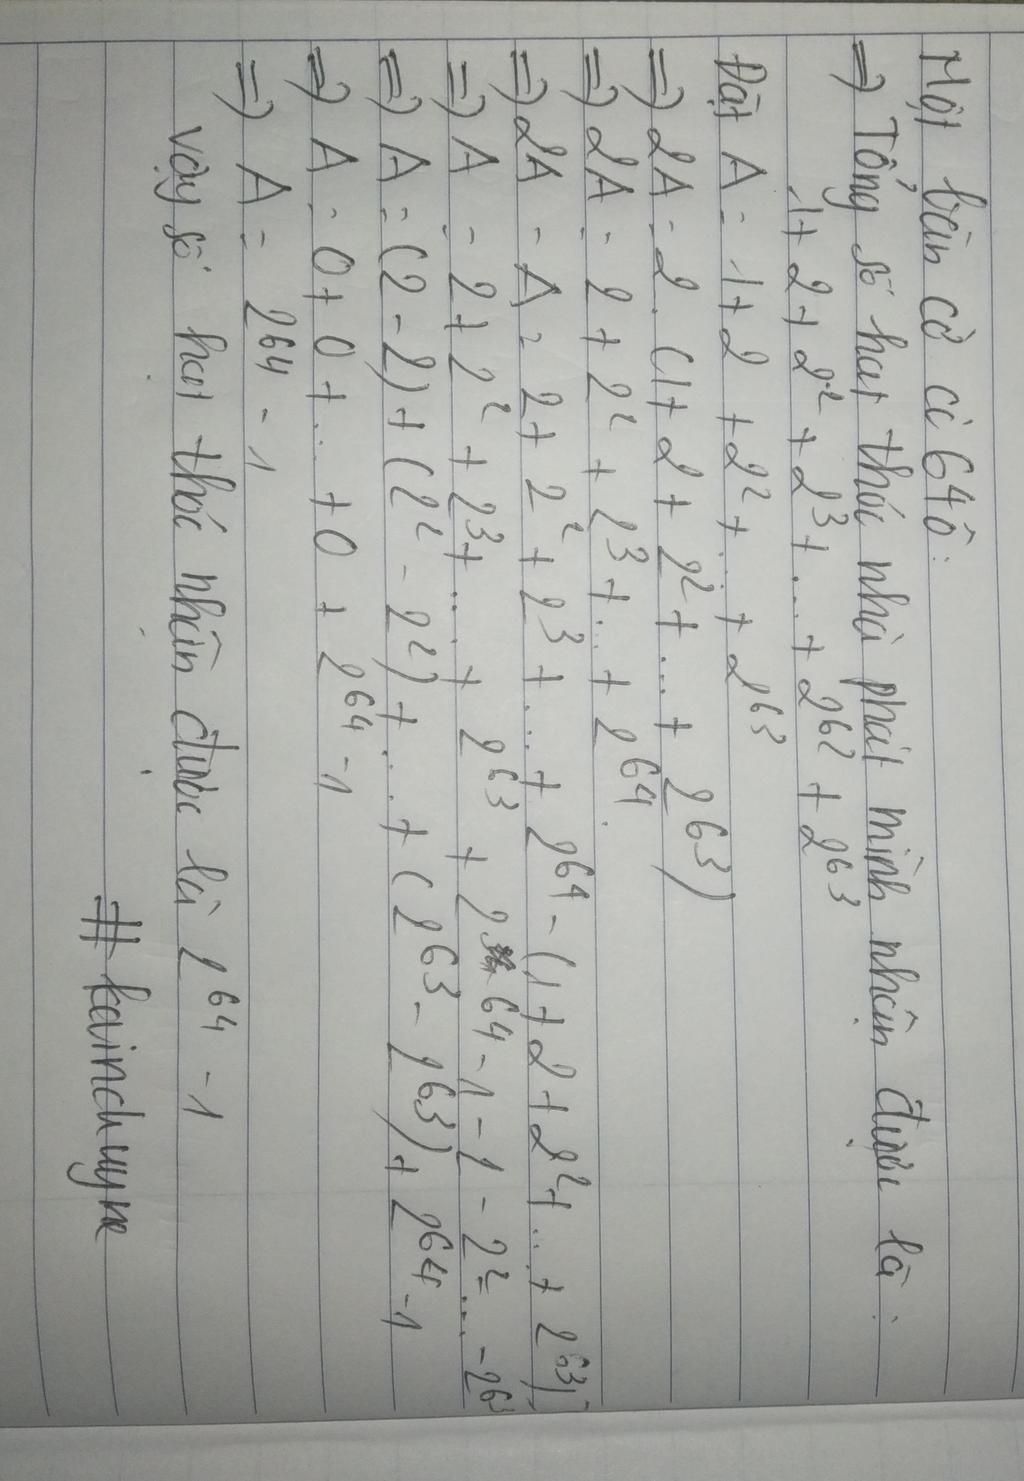 Một bàn cờ có 64 ô:
=> Tổng số hạt thóc nhà phát minh nhận được là:
1 + 2 + 2² + 2³ + ... + 2⁶² + 2⁶³
Đặt A = 1 + 2 + 2² + ... + 2⁶³
=> 2A = 2 . (1 + 2 + 2² + ... + 2⁶³)
=> 2A = 2 + 2² + 2³ + ... + 2⁶⁴.
=> 2A - A = 2 + 2² + 2³ + ... + 2⁶⁴ - (1 + 2 + 2² + ... + 2⁶³)
=> A = 2 + 2² + 2³ + ... + 2⁶³ + 2⁶⁴ - 1 - 2 - 2² - ... - 2⁶³
=> A = (2 - 2) + (2² - 2²) + ... + (2⁶³ - 2⁶³) + 2⁶⁴ - 1
=> A = 0 + 0 + ... + 0 + 2⁶⁴ - 1
=> A = 2⁶⁴ - 1
Vậy số hạt thóc nhận được là 2⁶⁴ - 1